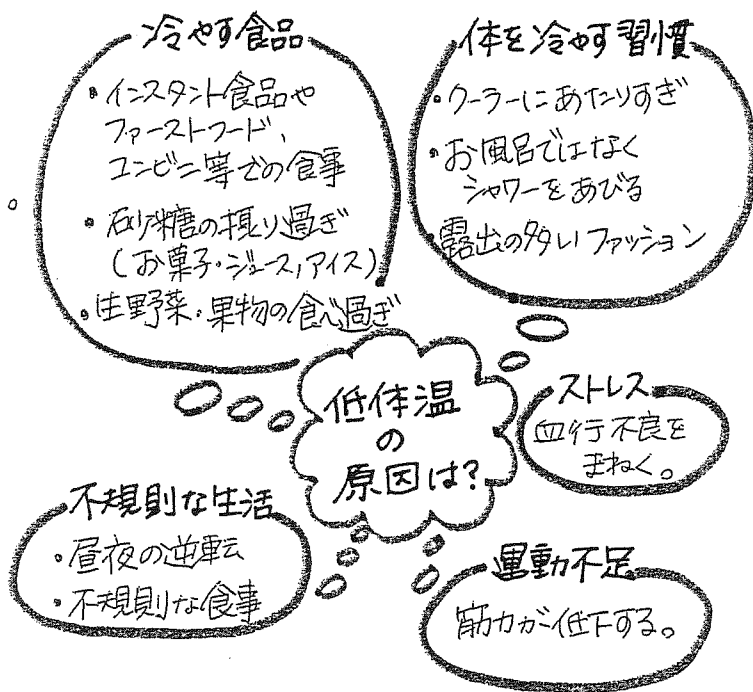 冷やす食品
・インスタント食品や
ファーストフード、
コンビニ等での食事
・砂糖の摂り過ぎ
(お菓子・ジュース、アイス)
・生野菜・果物の食べ過ぎ
体を冷やす習慣
・クーラーにあたりすぎ
・お風呂ではなく
シャワーをあびる
・露出の多いファッション
低体温
の
原因は?
ストレス
血行不良を
まねく。
不規則な生活
・昼夜の逆転
・不規則な食事
運動不足
筋力が低下する。